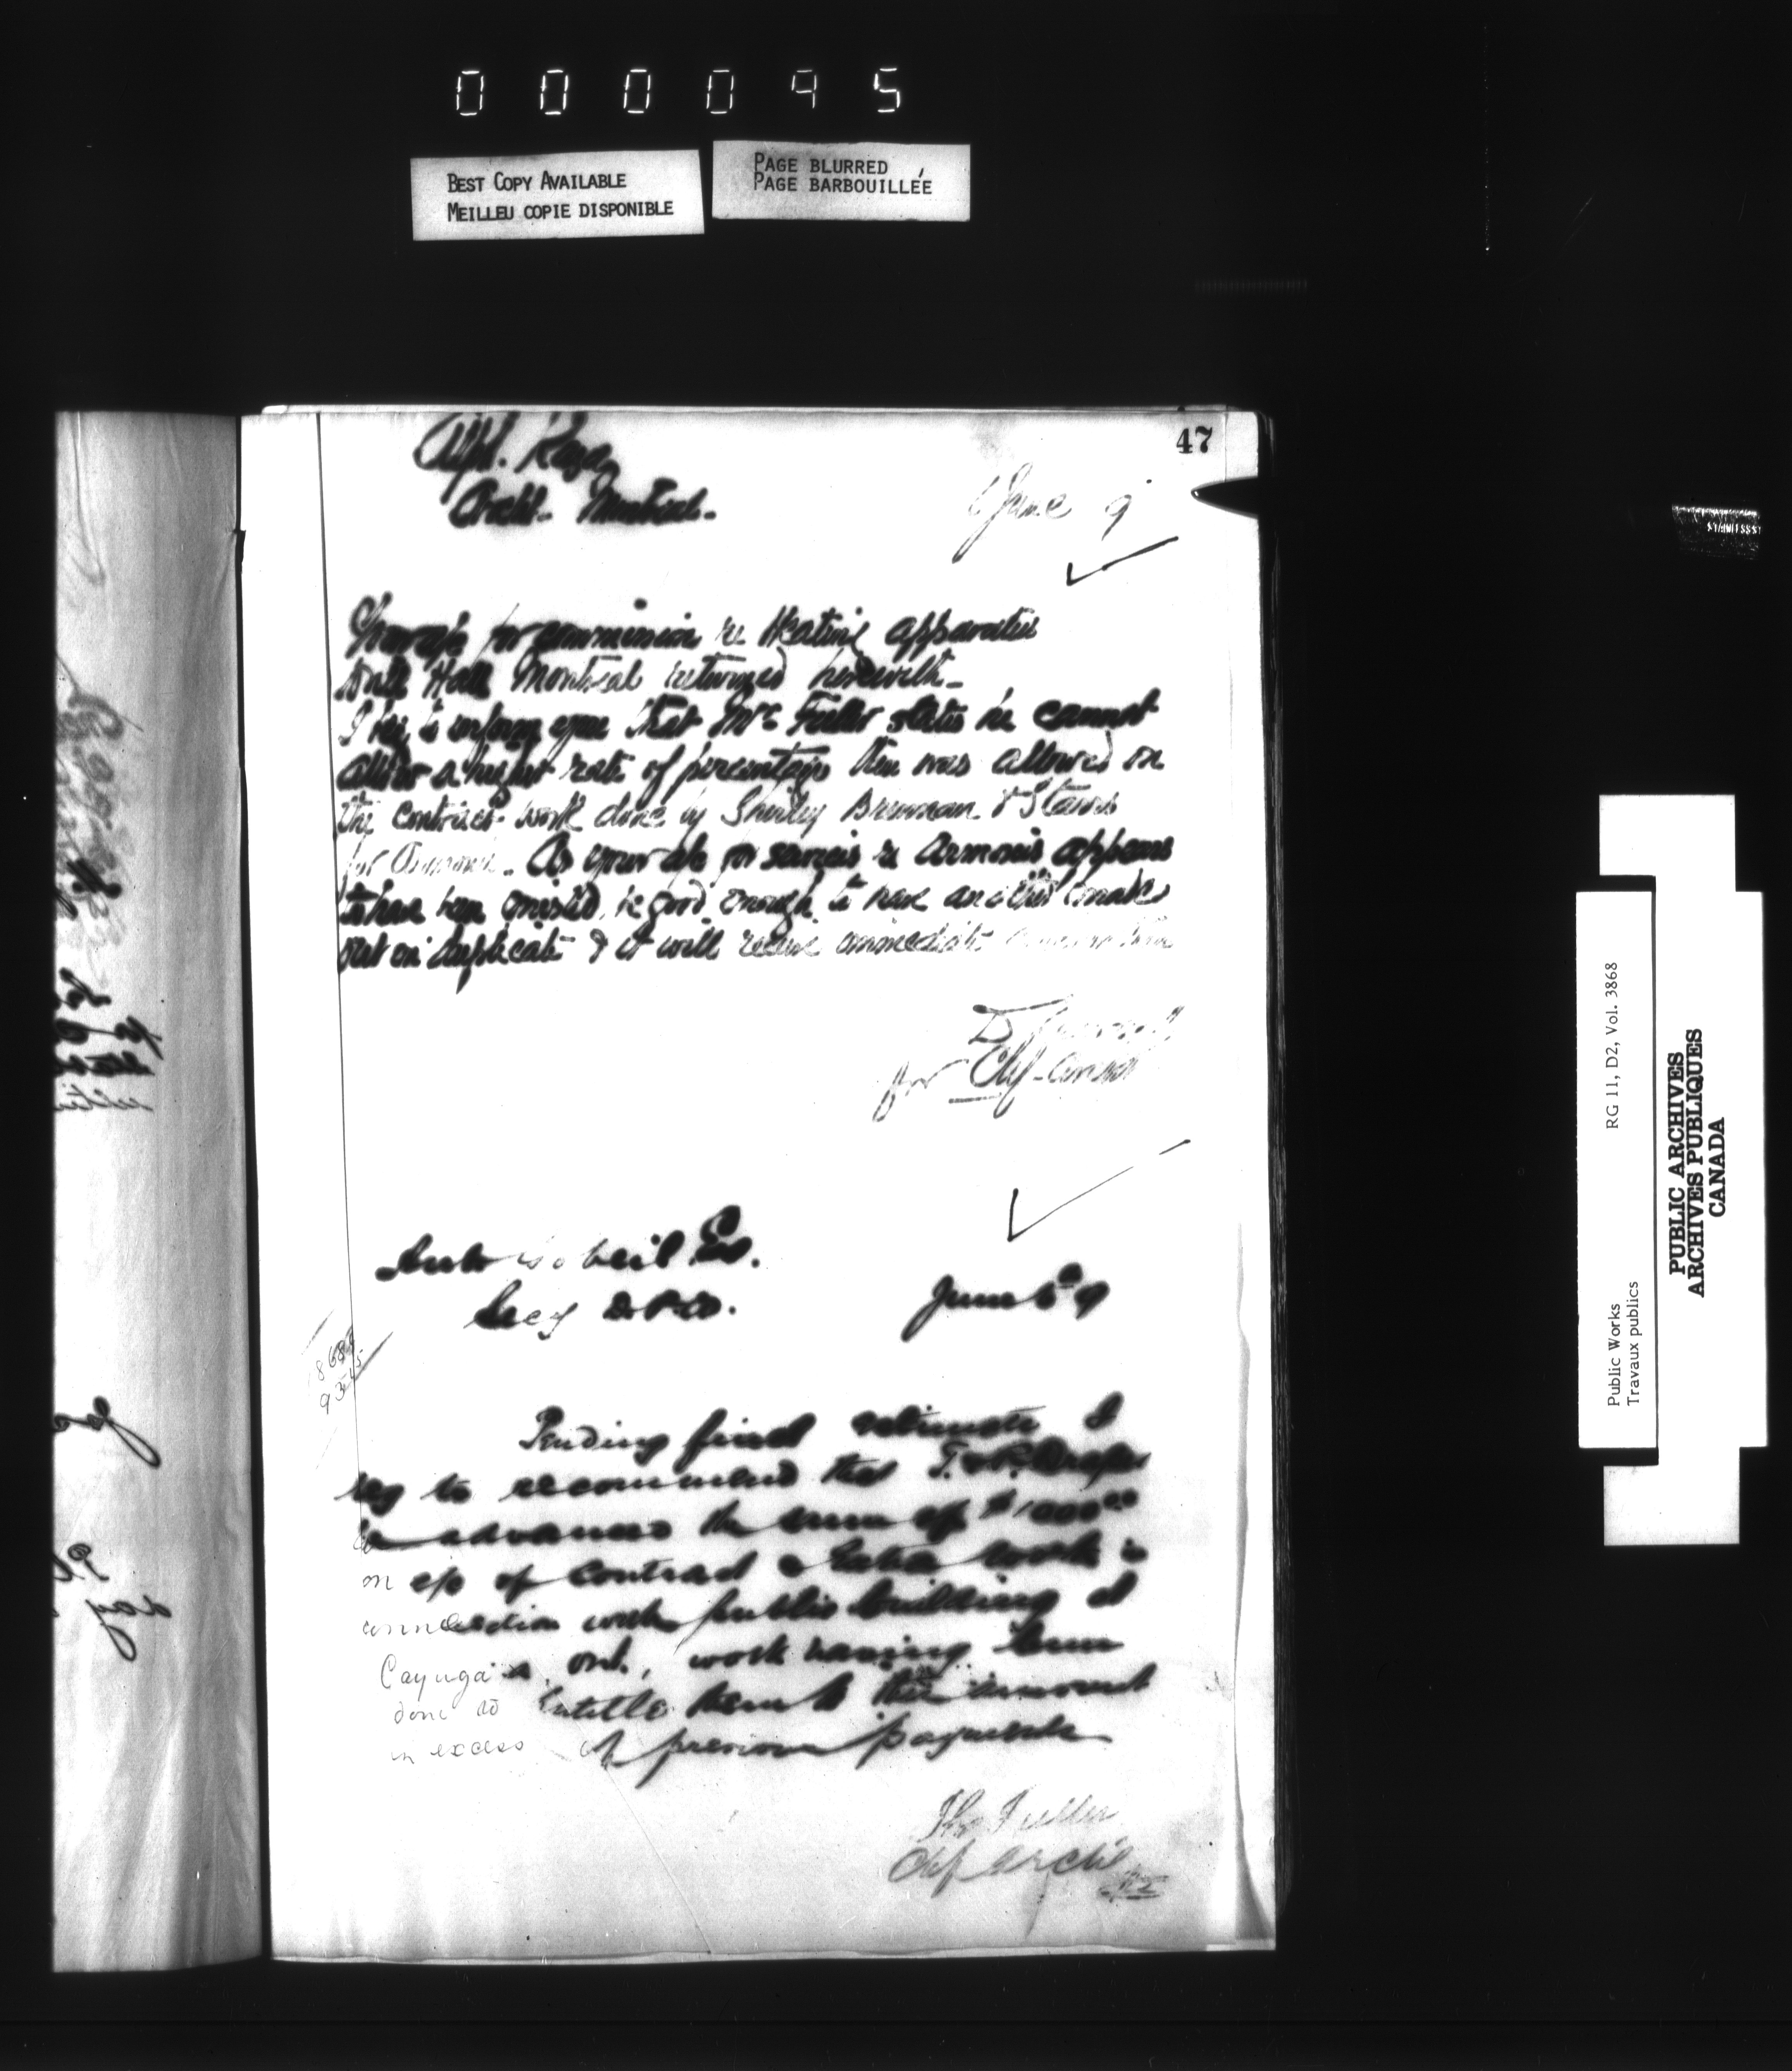 000095
BEST COPY AVAILABLE
MEILLEU COPIE DISPONIBLE
PAGE BLURRED
PAGE BARBOUILLÉE
47
Alph. Raza
Archt. Montreal.
June 9
for commission re Heating apparatus
Drill Hall Montreal returned herewith_
I beg to inform you that Mr Fuller states he cannot
allow a higher rate of percentage than was allowed on
the contract work done by Brennan &
for . As your a/c for services re Armories appears
to have been , be good enough to have another made
out in duplicate & it will receive immediate
D
for Chf. Archt
Gobeil Esq.
Secy D.P.W.
June 9
868
Pending final estimate I
beg to recommend that T. & P. Draper
be advanced the sum of $1000.00
on a/c of contract & extra work in
connection with public building at
Cayuga, Ont., work having been
done to entitle them to this amount
in excess of previous payments
Thos Fuller
Chf Archt
Public Works
Travaux publics
RG 11, D2, Vol. 3868
PUBLIC ARCHIVES
ARCHIVES PUBLIQUES
CANADA